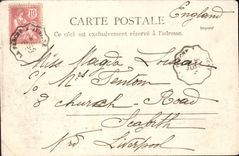 CARTE POSTALE
England
Ce côté est exclusivement réservé à l'adresse.
Miss Magda
c/o Mrs Fenton
8 Church Road
Seaforth
Nrd Liverpool